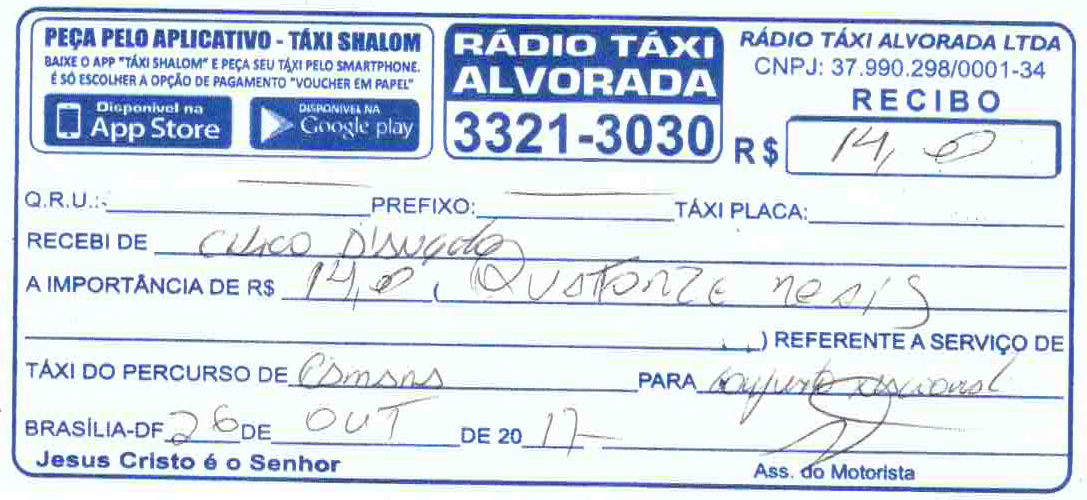 PEÇA PELO APLICATIVO - TÁXI SHALOM
BAIXE O APP "TÁXI SHALOM" E PEÇA SEU TÁXI PELO SMARTPHONE.
É SÓ ESCOLHER A OPÇÃO DE PAGAMENTO "VOUCHER EM PAPEL"
Disponível na
App Store
DISPONÍVEL NA
Google play
RÁDIO TÁXI
ALVORADA
3321-3030
RÁDIO TÁXI ALVORADA LTDA
CNPJ: 37.990.298/0001-34
RECIBO
R$ 14,0
Q.R.U.: PREFIXO: TÁXI PLACA:
RECEBI DE
A IMPORTÂNCIA DE R$ 14,0 ( Quatorze reais
) REFERENTE A SERVIÇO DE
TÁXI DO PERCURSO DE PARA conjunto nacional
BRASÍLIA-DF 26 DE OUT DE 20 17
Jesus Cristo é o Senhor
Ass. do Motorista